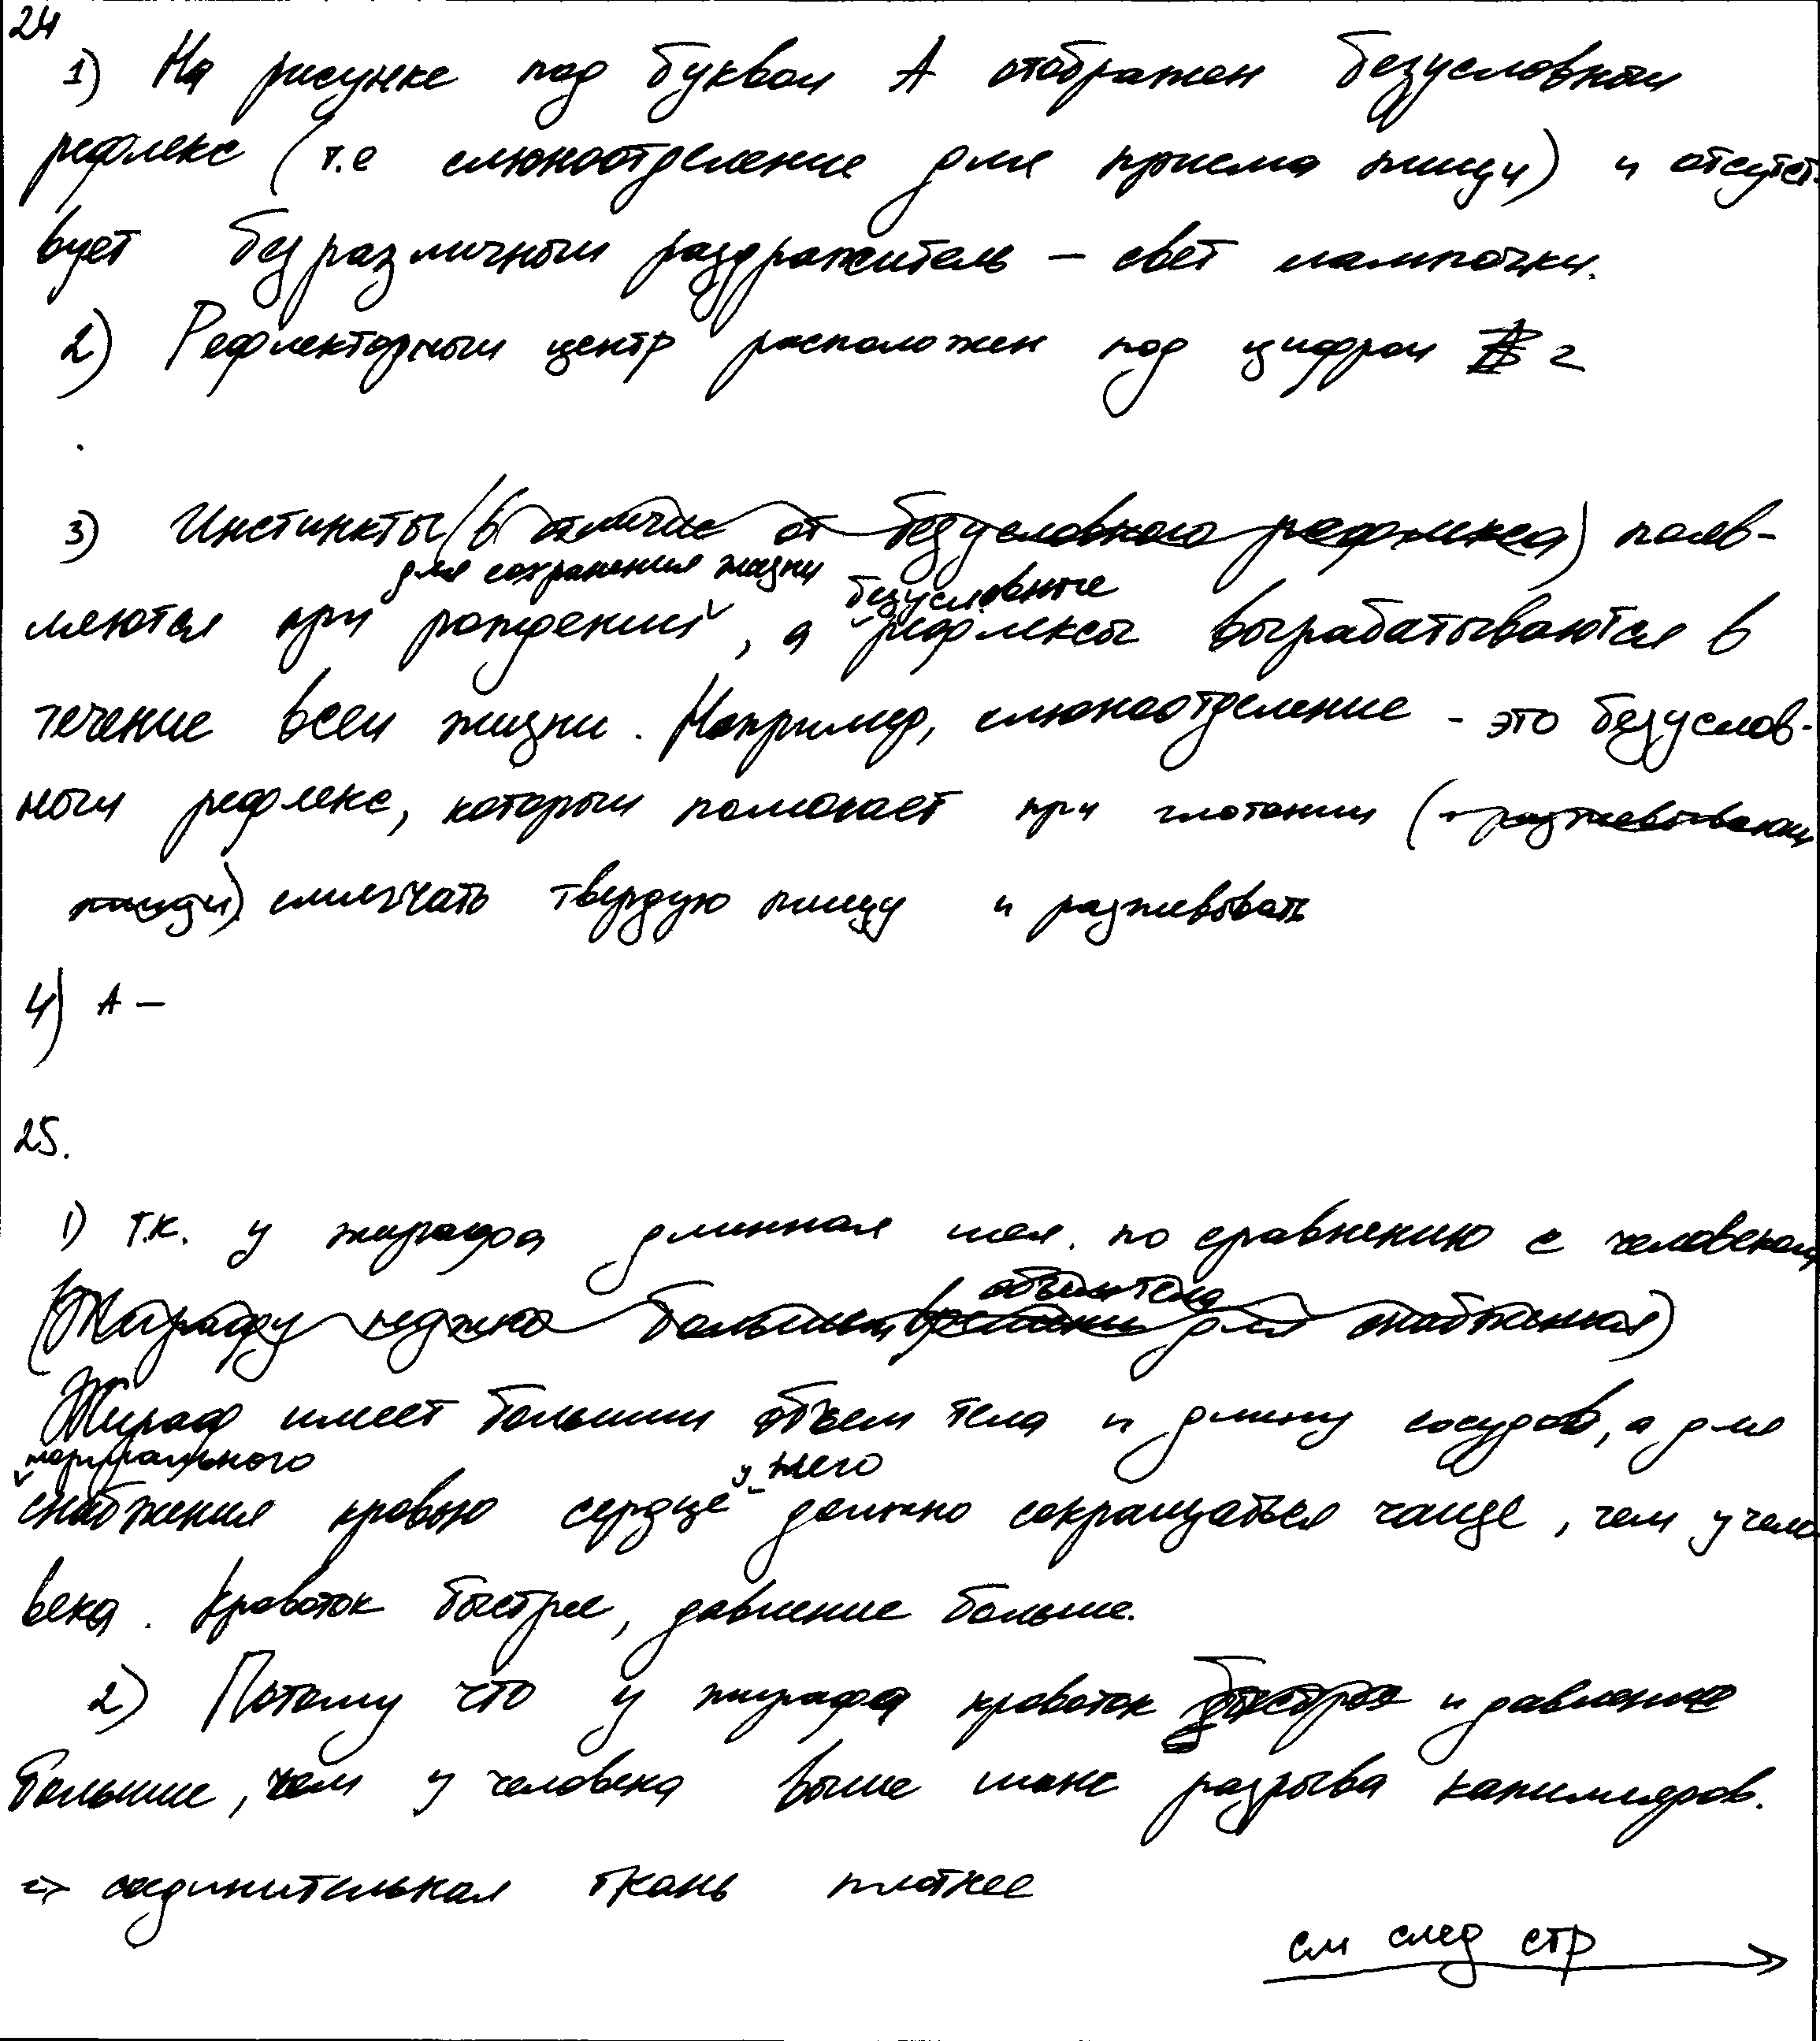 24
1) На рисунке под буквой А отображен безусловный
рефлекс (т.е слюноотделение для приема пищи) и отсутст-
вует безразличный раздражитель – свет лампочки.
2) Рефлекторный центр расположен под цифрой 2
3) Инстинкты (в отличие от безусловного рефлекса) появ-
для сохранения жизни безусловные
ляются при рождении, а рефлексы вырабатываются в
течение всей жизни. Например, слюноотделение - это безуслов-
ный рефлекс, который помогает при глотании (
пищи) смягчать твердую пищу и разжевовать
4) А –
25.
1) т.к. у жирафа длинная шея по сравнению с человеком
(Жирафу нужно больший объем тела для снабжения)
Жираф имеет больший объем тела и длину сосудов, а для
нормального у него
снабжения кровью сердце должно сокращаться чаще, чем у чело
века. Кровоток быстрее, давление больше.
2) Потому что у жирафа кровоток быстрее и давление
большие, чем у человека выше шанс разрыва капилляров.
=> соединительная ткань плотнее
см след стр